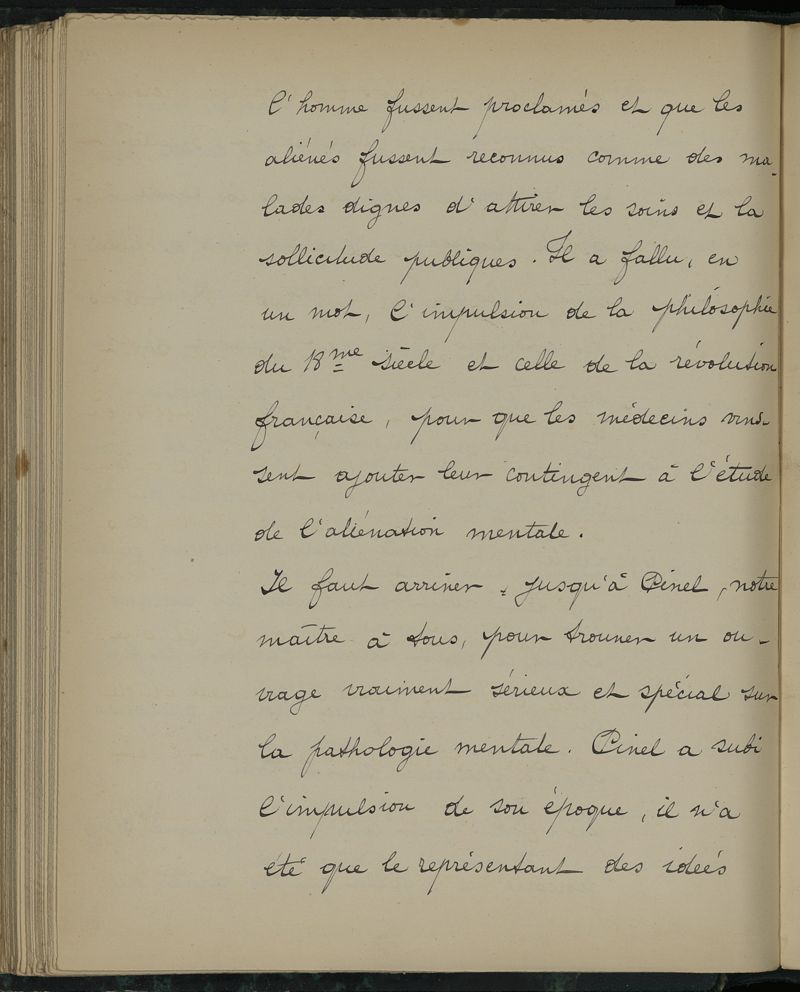 l'homme fussent proclamés et que les
aliénés fussent reconnus comme des ma-
lades dignes d'attirer les soins et la
sollicitude publiques. Il a fallu, en
un mot, l'impulsion de la philosophie
du 18me siècle et celle de la révolution
française, pour que les médecins vins-
sent ajouter leur contingent à l'étude
de l'aliénation mentale.
Il faut arriver jusqu'à Pinel, notre
maître à tous, pour trouver un ou-
vrage vraiment sérieux et spécial sur
la pathologie mentale. Pinel a subi
l'impulsion de son époque, il n'a
été que le représentant des idées